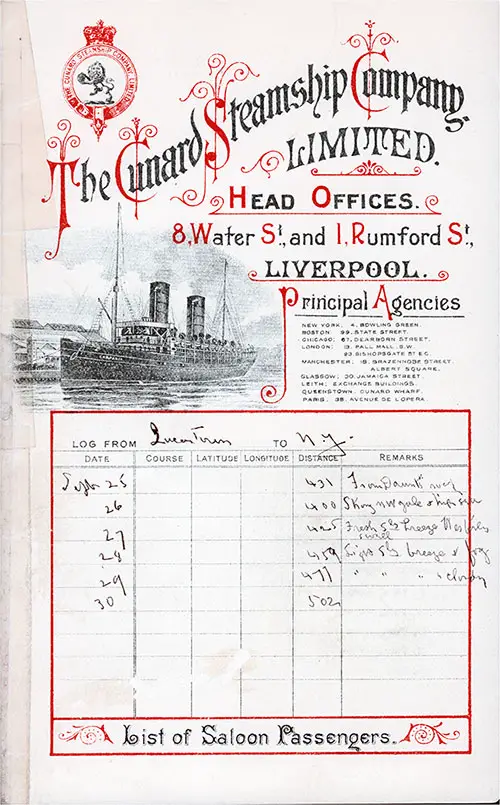 THE CUNARD STEAMSHIP COMPANY LIMITED
The Cunard Steamship Company.
LIMITED.
HEAD OFFICES.
8, Water St., and 1, Rumford St.,
LIVERPOOL.
Principal Agencies
NEW YORK, 4, BOWLING GREEN.
BOSTON 99, STATE STREET.
CHICAGO: 67, DEARBORN STREET.
LONDON: 13, PALL MALL, S.W.
93, BISHOPSGATE ST E.C.
MANCHESTER, 18, BRAZENNOSE STREET,
ALBERT SQUARE.
GLASGOW, 30, JAMAICA STREET.
LEITH; EXCHANGE BUILDINGS.
QUEENSTOWN, CUNARD WHARF.
PARIS, 38, AVENUE DE L'OPERA.
LOG FROM Queenstown TO N.Y.
DATE COURSE LATITUDE LONGITUDE DISTANCE REMARKS
Sept 25 431 From Daunts
26 400 Strong NW gale & high sea
27 425 Fresh Sly breeze Westerly
swell
28 459 Light Sly breeze & fog
29 477 " " " & cloudy
30 502
List of Saloon Passengers.